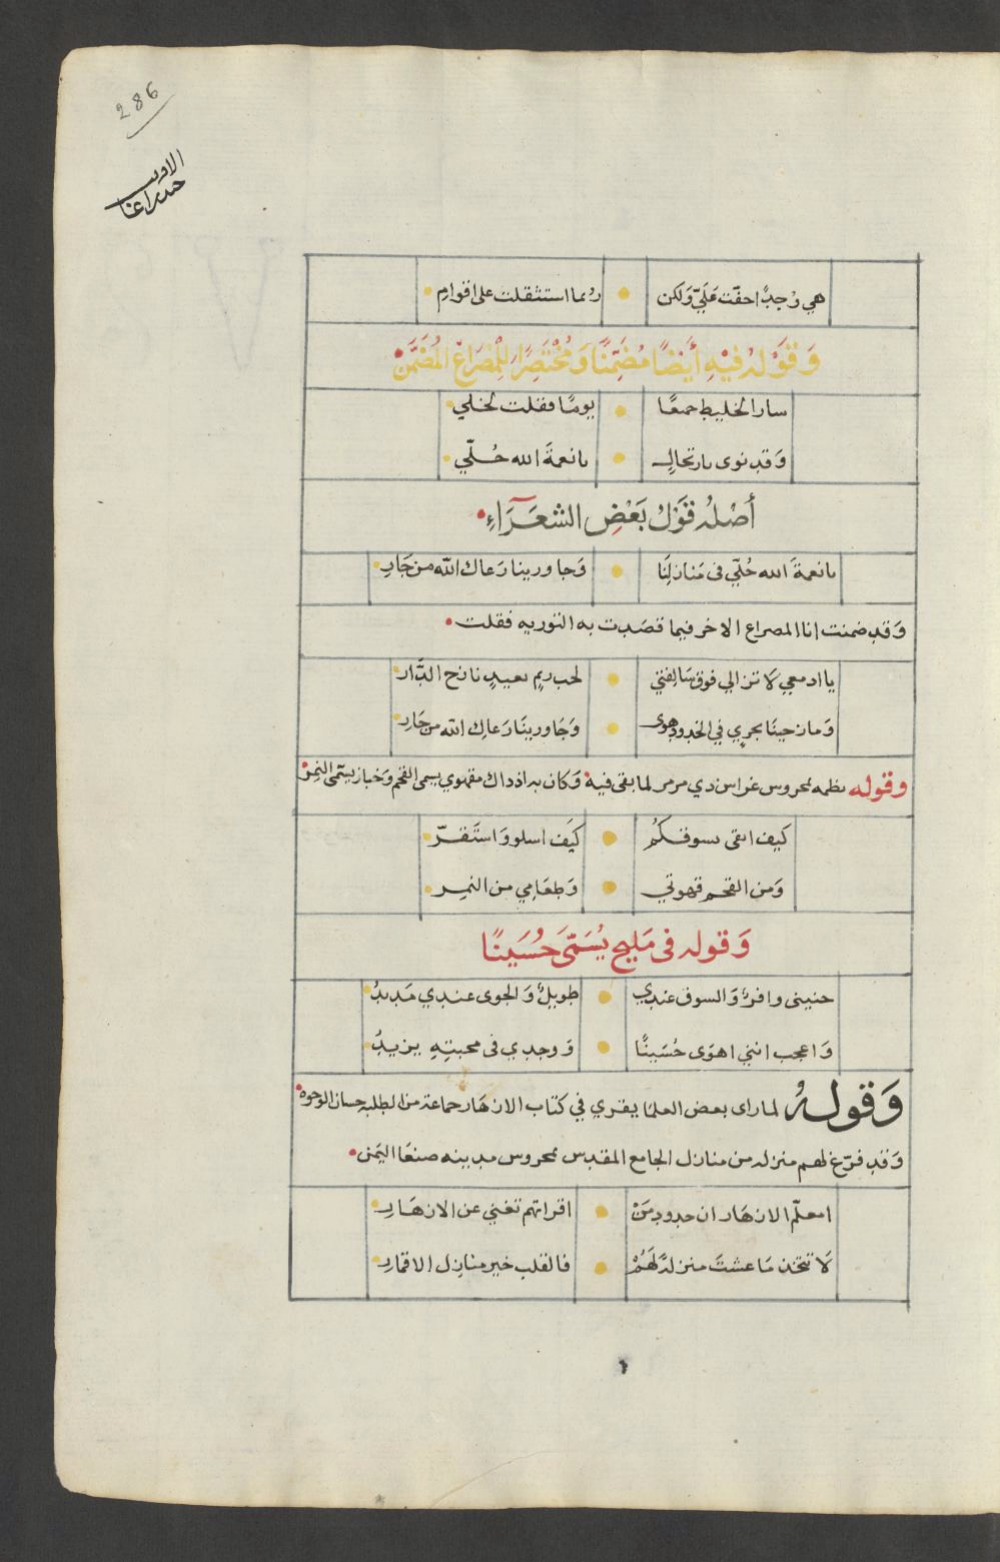 286
الاديب
حيدر اغا
هي روْحِيْ احقّت عَلَيّ وَلكن • ربما استثقلت على اقوامِ •
وَقَوْلهُ فِيْهِ أَيْضًا مُضَمِّنًا وَمُخْتَصِرًا لِلْمِصْرَاعْ المُضَمَّنْ •
سار الخليط جمعًا • يومًا فقلت لخلي •
وَقد نوى بارتحالٍ • يا نعمةَ الله حُلّي •
أَصْلُهُ قَوْلُ بَعْضِ الشعَرَاءِ •
يا نعمةَ الله حُلّي فى مَنازلِنَا • وَجاورينا رَعاك الله من جَارِ •
وَقد ضمنت انا المصراع الاخر فيما قصَدت به التوريه فقلت •
يا ادمعي لَا تزالي فوق سَالِفتي • لحب ريمٍ بعيدٍ نازح الدَّارِ •
وَمازحينَا بجري في الخدود هوى • وَجَاورينَا رَعاكِ الله من جَارِ •
وقوله نظمه بمحروس غراس ذي مرمر لما بقى فيهْ وَكان به اذ ذاك مقهوي يسمى الفحم وَخباز يسَمّى النمِرْ •
كيف ابقى بسوفكمُ • كيَف اسلو وَاستَقرّ •
وَمن الفحم قهوتي • وَطعَامِي من النمِر •
وَقوله فى مَليح يُسَمّىَ حُسَينًا
حنينى وافرٌ وَالسوق عندي • طويلٌ وَالجوى عندي مَديدُ •
وَاعجب اننى اهوَى حُسَينًا • وَوجدي فى محبتِهِ يزيدُ •
وَقولهُ لما راى بعض العلمَا يقري في كتاب الازهَار جماعة من الطلبه حسان الوجوه •
وَقد فرّغ لهم منزله من منازل الجامع المقدس بمحروس مدينه صنعَا اليَمن •
امعلّم الازهَار ان حدود مَنْ • اقراتهم تغني عن الازهَارِ •
لَا تتخذ مَا عشتَ منزلةً لَهُمْ • فالقلب خير منازِل الاقمارِ •